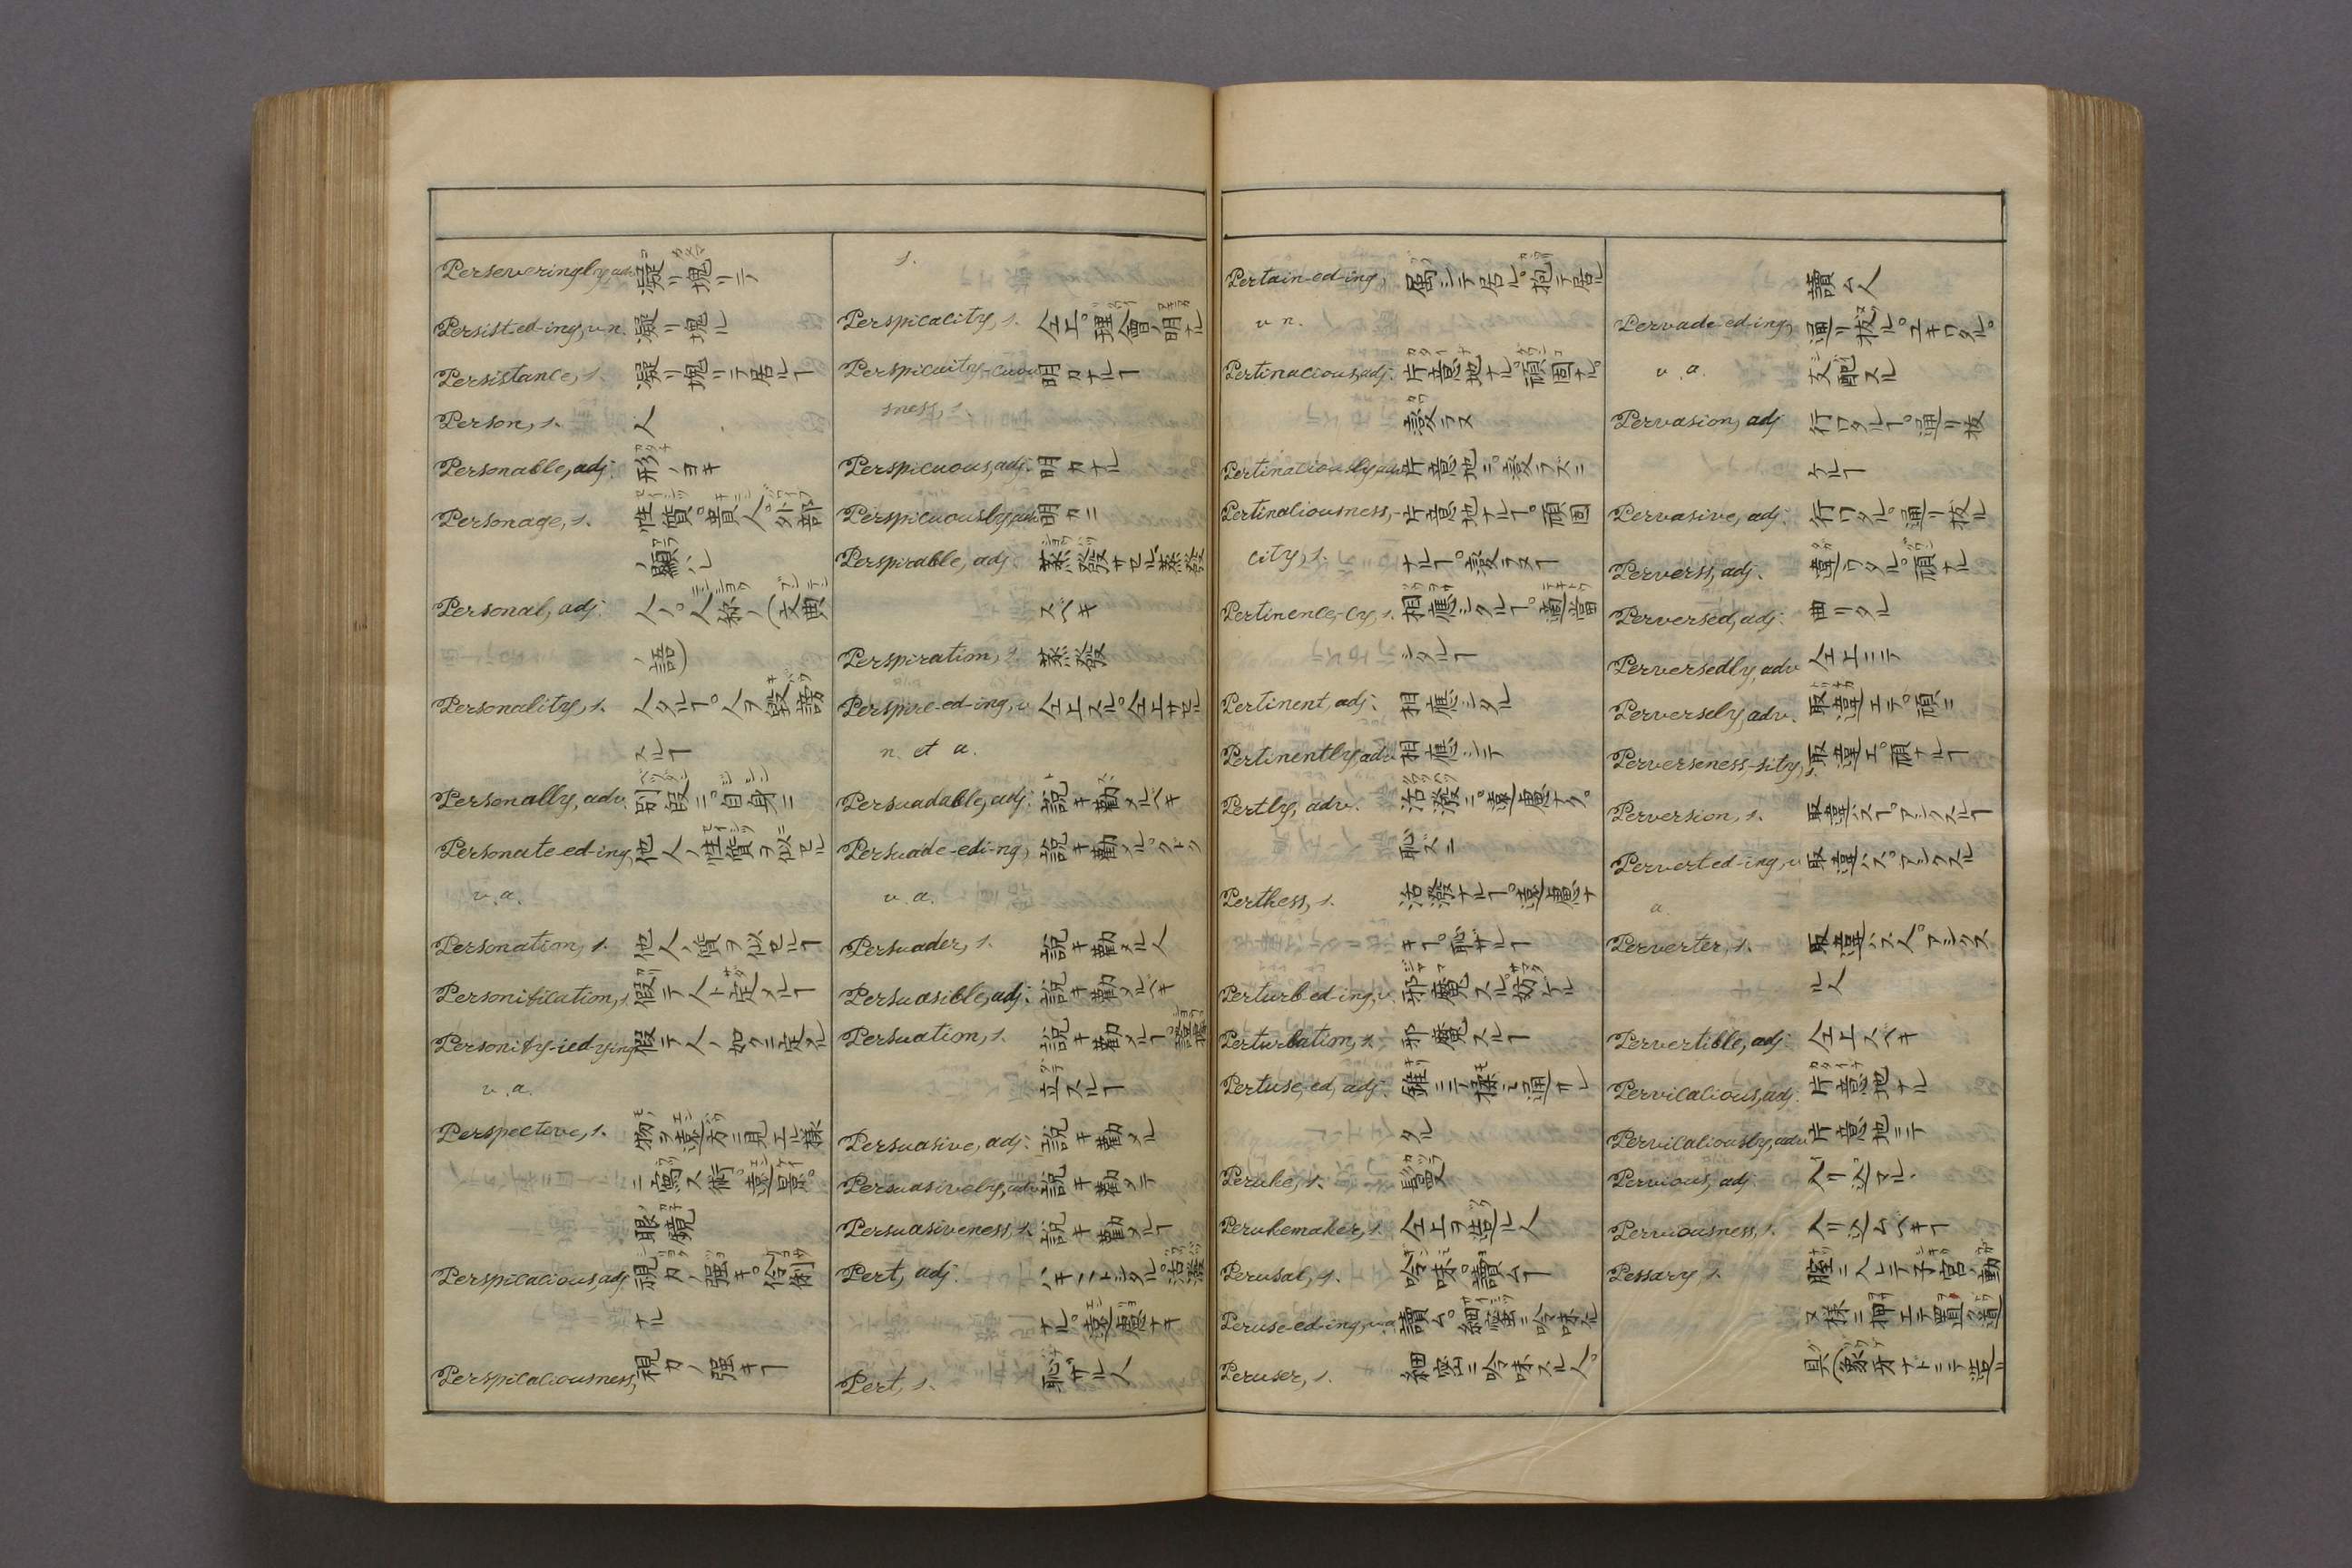 Perseveringly, adv. 凝リ塊リテ
Persist-ed-ing, v.n. 凝リ塊ル
Persistance, s. 凝リ塊リテ居ルヿ
Person, s. 人
Personable, adj. 形ノヨキ
Personage, s. 性質。貴人。外部
ノ顕ハレ
Personal, adj. 人ノ。人称ノ(文典
ノ語)
Personality, s. 人タルヿ。人ヲ毀謗
スルヿ
Personally, adv. 別段ニ。自身ニ
Personate-ed-ing, 他人ノ性質ヲ似セル
v.a.
Personation, s. 他人ノ質ヲ似セルヿ
Personification, s. 假テ人ト定メルヿ
Personify-ied-ying 假テ人ノ如クニ定メル
v.a.
Perspective, s. 物ヲ遠方ニ見エル様
ニ寫ス術。遠景。
眼鏡
Perspicacious, adj. 視力ノ強キ。怜悧
ナル
Perspicaciousness, 視力ノ強キヿ
s.
Perspicacity, s. 仝上。理會ノ明ナル
Perspicuity-cuou 明カナルヿ
sness, s.
Perspicuous, adj. 明カナル
Perspicuously, adv. 明カニ
Perspirable, adj. 蒸發サセル。蒸發
スベキ
Perspiration, s. 蒸發
Perspire-ed-ing, v. 仝上スル。仝上サセル
n. et a.
Persuadable, adj. 説キ勸メルベキ
Persuade-edi-ng, 説キ勸メル。クドク
v.a.
Persuader, s. 説キ勸メル人
Persuasible, adj. 説キ勸メルベキ
Persuation, s. 説キ勸メルヿ。證據
立スルヿ
Persuasive, adj. 説キ勸メル
Persuasively, adv. 説キ勸メテ
Persuasiveness, s. 説キ勸メルヿ
Pert, adj. ハキハトシタル。活溌
ナル。遠慮ナキ
Pert, s. 恥ザル人
Pertain-ed-ing, 属シテ居ル。抱テ居ル
v n.
Pertinacious, adj. 片意地ナル。頑固ナル。
変ラヌ
Pertinaciously, adv. 片意地ニ。変ラズニ
Pertinaciousness,- 片意地ナルヿ。頑固
city, s. ナルヿ。変ラヌヿ
Pertinence,-cy, s. 相應シタルヿ。適當
シタルヿ
Pertinent, adj. 相應シタル
Pertinently, adv. 相應シテ
Pertly, adv. 活溌ニ。遠慮ナク。
恥ズニ
Pertness, s. 活溌ナルヿ。遠慮ナ
キヿ。恥ザルヿ
Perturb-ed-ing, v. 邪魔スル。妨ゲル
Perturbation, s. 邪魔スルヿ
Pertuse,-ed, adj. 錐ニテ揉ミ通サレ
タル
Peruke, s. 鬘
Perukemaker, s. 仝上ヲ造ル人
Perusal, s. 吟味。讀ムヿ
Peruse-ed-ing, v.a. 讀ム。細密ニ吟味スル
Peruser, s. 細密ニ吟味スル人。
讀ム人
Pervade-ed-ing, 通リ抜ル。ユキワタル。
v.a. 支配スル
Pervasion, adj 行ワタルヿ。通リ抜
ケルヿ
Pervasive, adj. 行ワタル。通リ抜ル
Perverss, adj. 違ヮタル。頑ナル
Perversed, adj. 曲リタル
Perversedly, adv 仝上ニテ
Perversely, adv. 取違エテ。頑ニ
Perverseness,-sity, s. 取違エ。頑ナルヿ
Perversion, s. 取違ハスヿ。アシクスルヿ
Pervert-ed-ing, v 取違ハス。アシクスル
a.
Perverter, s. 取違ハス人。アシクス
ル人
Pervertible, adj. 仝上スベキ
Pervicacious, adj. 片意地ナル
Pervicaciously, adv 片意地ニテ
Pervious, adj. 入リ込マル、
Perviousness, s. 入リ込ムベキヿ
Pessary s. 膣ニ入レテ子宮ノ動カ
ヌ様ニ押エテ置ク道
具(象牙ナドニテ造ル